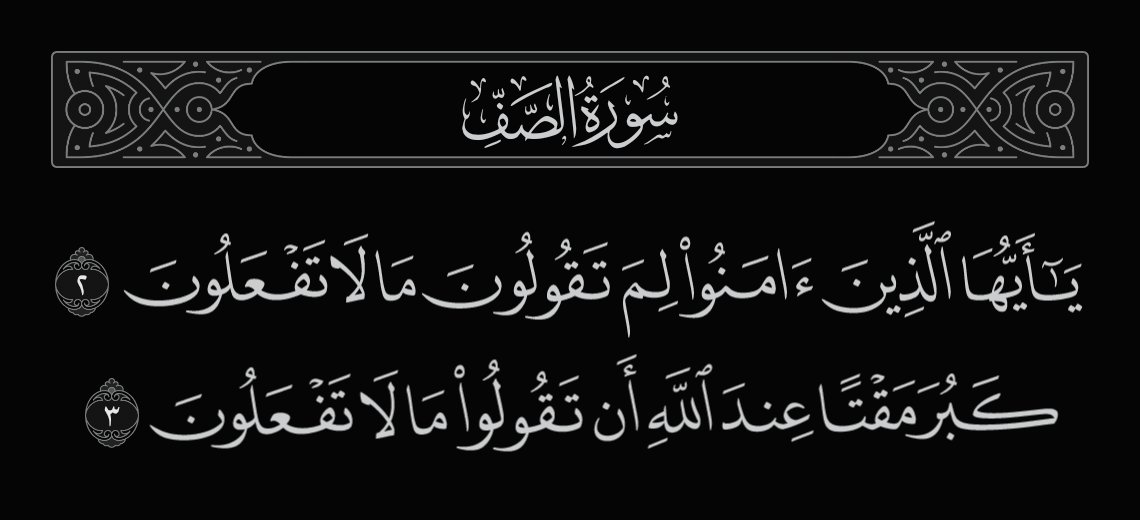 سُورَةُ الصَّفِّ
يَـٰٓأَيُّهَا ٱلَّذِينَ ءَامَنُوا۟ لِمَ تَقُولُونَ مَا لَا تَفْعَلُونَ ٢
كَبُرَ مَقْتًا عِندَ ٱللَّهِ أَن تَقُولُوا۟ مَا لَا تَفْعَلُونَ ٣